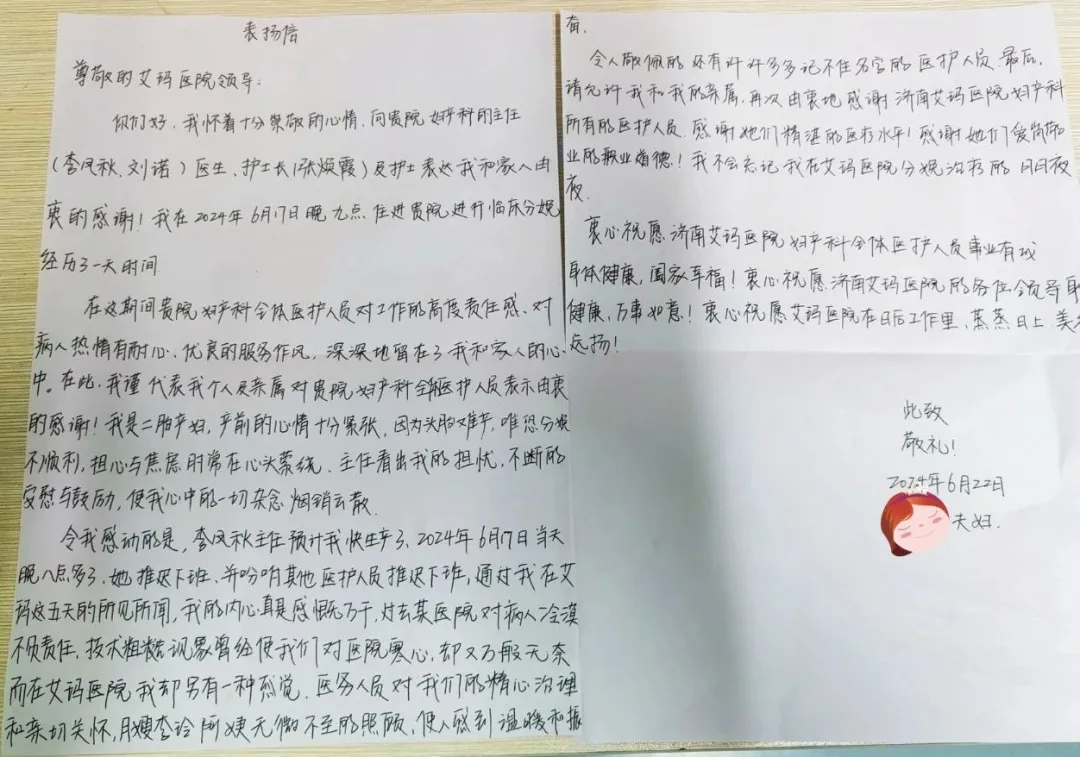 表扬信
尊敬的艾玛医院领导:
你们好,我怀着十分崇敬的心情,向贵院妇产科的主任
(李凤秋、刘诺)医生、护士长(张焕霞)及护士表达我和家人由
衷的感谢!我在2024年6月17日晚九点住进贵院进行临床分娩
经历了一天时间
在这期间贵院妇产科全体医护人员对工作的高度责任感、对
病人热情有耐心、优良的服务作风,深深地留在了我和家人的心
中。在此,我谨代表我个人及亲属对贵院妇产科全体医护人员表示由衷
的感谢!我是二胎产妇,产前的心情十分紧张,因为头胎难产,唯恐分娩
不顺利,担心与焦虑时常在心头萦绕。主任看出我的担忧,不断的
安慰与鼓励,使我心中的一切杂念烟销云散。
令我感动的是,李凤秋主任预计我快生产了、2024年6月17日当天
晚八点多了、她推迟下班、并吩咐其他医护人员推迟下班,通过我在艾
玛这五天的所见所闻,我的内心真是感慨万千,过去某医院对病人冷漠
不负责任,技术粗糙现象曾经使我们对医院寒心,却又万般无奈
而在艾玛医院我却另有一种感觉。医务人员对我们的精心治理
和亲切关怀,月嫂李玲阿姨无微不至的照顾,使人感到温暖和振
奋.
令人敬佩的还有许许多多记不住名字的医护人员.最后,
请允许我和我的亲属,再次由衷地感谢济南艾玛医院妇产科
所有的医护人员.感谢她们精湛的医疗水平!感谢她们爱岗敬
业的职业道德!我不会忘记我在艾玛医院分娩治疗的日日夜
夜.
衷心祝愿济南艾玛医院妇产科全体医护人员事业有成
身体健康,阖家幸福!衷心祝愿济南艾玛医院的各位领导身
健康,万事如意!衷心祝愿艾玛医院在日后工作里、蒸蒸日上美名
远扬!
此致
敬礼!
2024年6月22日
夫妇.